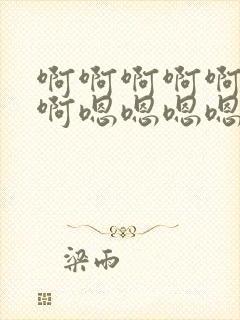 啊啊啊啊啊
啊嗯嗯嗯嗯
梁雨